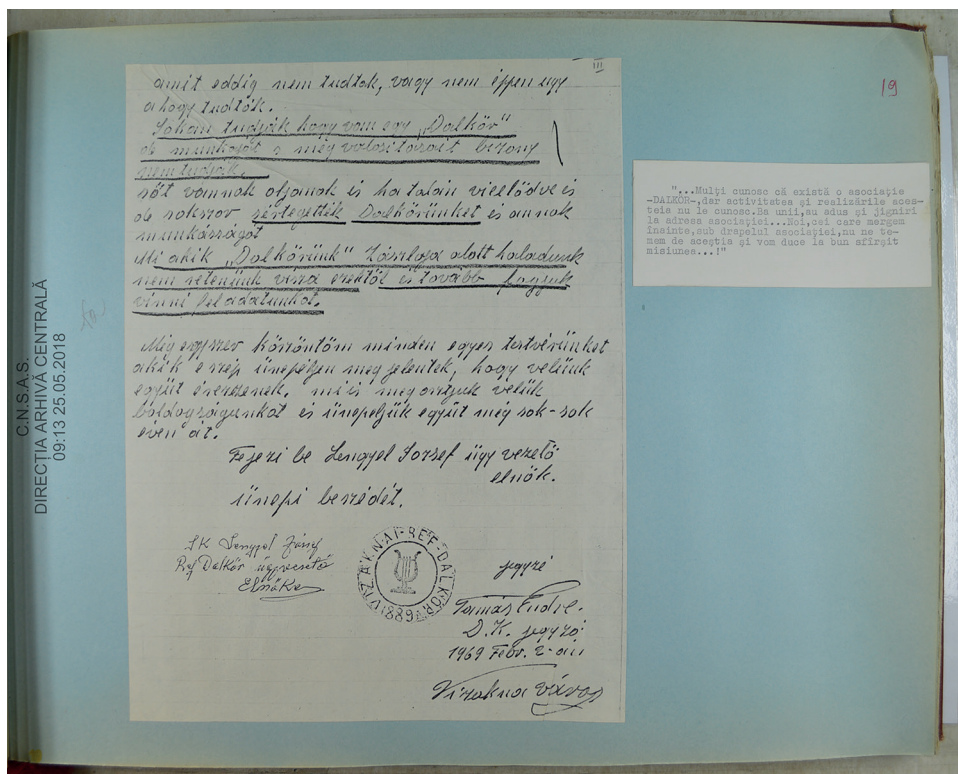 III
amit eddig nem tudtak, vagy nem éppen ugy
ahogy tudták.
Sokan tudják hogy van egy „Dalkör"
de munkáját s még valositásait bizony
nem tudják,
sőt vannak oljanok is ha talán viccelödve is
de sokszor sértegették Dalkörünket is annak
munkásságát
Mi akik „Dalkörünk" Zászloja alatt haladunk
nem retenjünk vissza ezektöl és tovább fogjuk
vinni feladatunkat.
Még egyszer köszöntöm minden egyes testvérünket
akik e szép ünnepéljen meg jelentek, hogy velünk
együt érezzenek. mi is megosztjuk velük
boldogságunkat és ünnepeljük együt még sok-sok
éven át.
Fejezi be Lengyel Jozsef ügy vezetö
elnök.
ünepi beszédét.
SK Lengyel József
Ref Dalkör ügyvezető
Elnöke
VIZAKNAI-REF-DALKÖR
1889
jegyző
Tamás Endre.
D.K. jegyző
1969 Febr. 2-án
Vizakna város
19
"...Mulţi cunosc că există o asociaţie
-DALKÖR-,dar activitatea şi realizările aces-
teia nu le cunosc.Ba unii,au adus şi jigniri
la adresa asociaţiei...Noi,cei care mergem
înainte,sub drapelul asociaţiei,nu ne te-
mem de aceştia şi vom duce la bun sfîrşit
misiunea...!"
C.N.S.A.S.
DIRECŢIA ARHIVĂ CENTRALĂ
09:13 25.05.2018